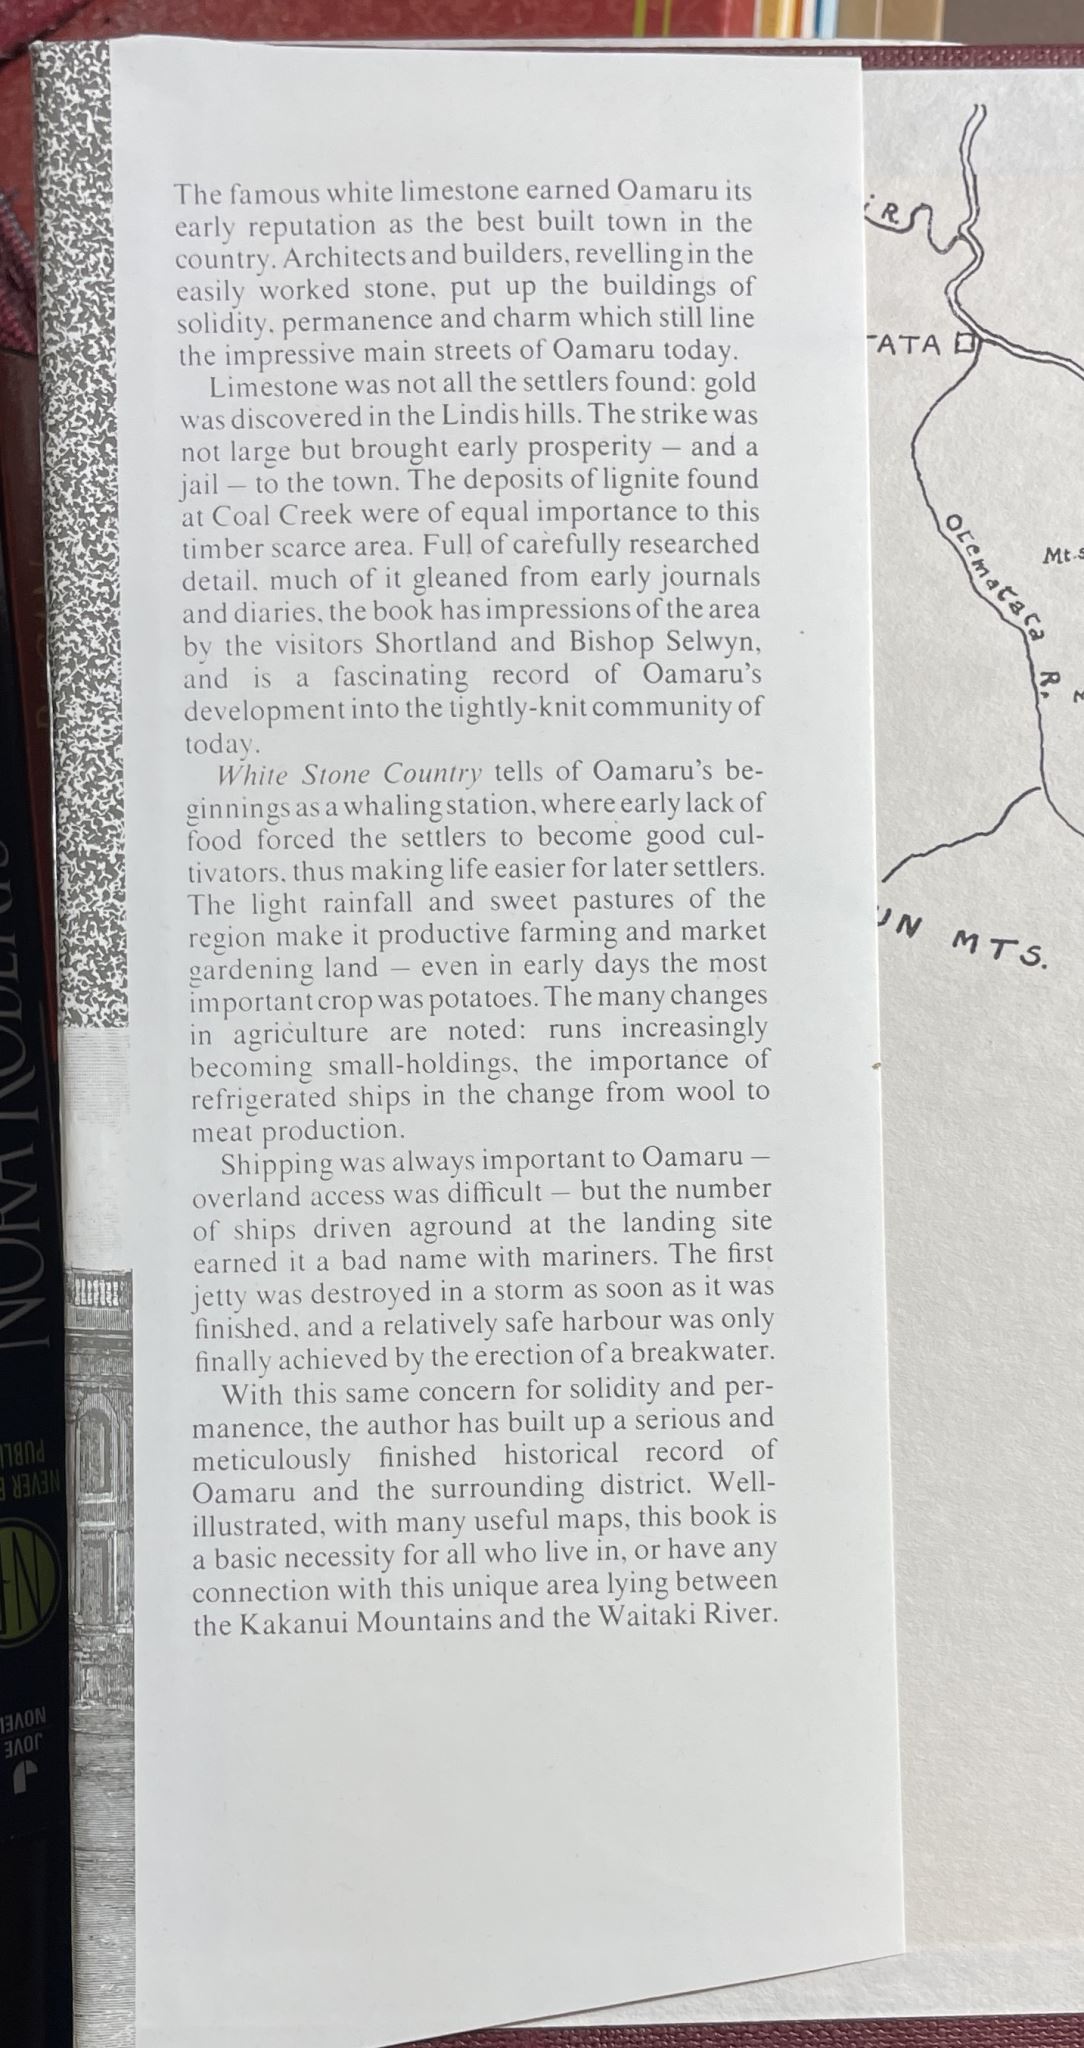 The famous white limestone earned Oamaru its
early reputation as the best built town in the
country. Architects and builders, revelling in the
easily worked stone, put up the buildings of
solidity, permanence and charm which still line
the impressive main streets of Oamaru today.
Limestone was not all the settlers found: gold
was discovered in the Lindis hills. The strike was
not large but brought early prosperity — and a
jail — to the town. The deposits of lignite found
at Coal Creek were of equal importance to this
timber scarce area. Full of carefully researched
detail, much of it gleaned from early journals
and diaries, the book has impressions of the area
by the visitors Shortland and Bishop Selwyn,
and is a fascinating record of Oamaru's
development into the tightly-knit community of
today.
White Stone Country tells of Oamaru's be-
ginnings as a whaling station, where early lack of
food forced the settlers to become good cul-
tivators, thus making life easier for later settlers.
The light rainfall and sweet pastures of the
region make it productive farming and market
gardening land — even in early days the most
important crop was potatoes. The many changes
in agriculture are noted: runs increasingly
becoming small-holdings, the importance of
refrigerated ships in the change from wool to
meat production.
Shipping was always important to Oamaru —
overland access was difficult — but the number
of ships driven aground at the landing site
earned it a bad name with mariners. The first
jetty was destroyed in a storm as soon as it was
finished, and a relatively safe harbour was only
finally achieved by the erection of a breakwater.
With this same concern for solidity and per-
manence, the author has built up a serious and
meticulously finished historical record of
Oamaru and the surrounding district. Well-
illustrated, with many useful maps, this book is
a basic necessity for all who live in, or have any
connection with this unique area lying between
the Kakanui Mountains and the Waitaki River.
R
TATA
Otematata R.
Mt.
UN MTS.
NORA ROBERTS
NEVER
PUBLI
JOVE
NOVEL